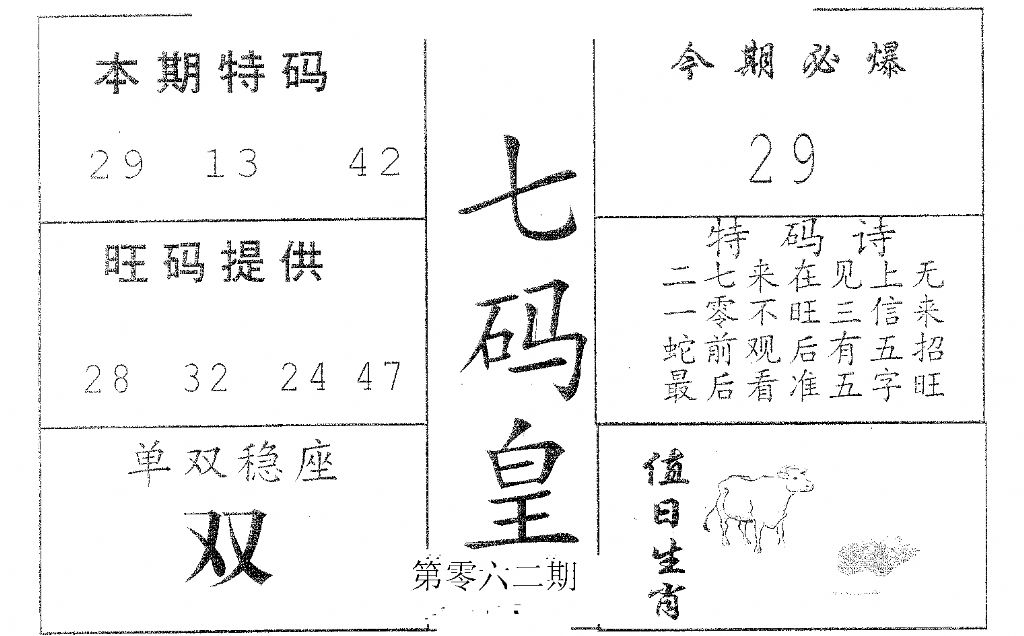 本期特码
29 13 42
旺码提供
28 32 24 47
单双稳座
双
七码皇
第零六二期
今期必爆
29
特码诗
二七来在见上无
一零不旺三信来
蛇前观后有五招
最后看准五字旺
值日生肖